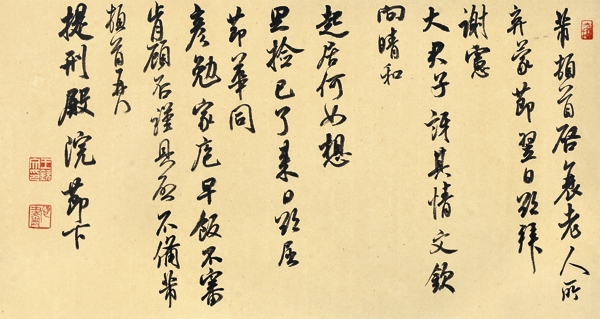 芾頓首啓衰老人所
弃蒙節翌日欲拜
謝憲
大君子訝其情文欽
向晴和
起居何如想
拾已了來日欲屈
節華同
彥勉家庖早飯不審
肯顧否謹具啓不備芾
頓首再拜
提刑殿院節下